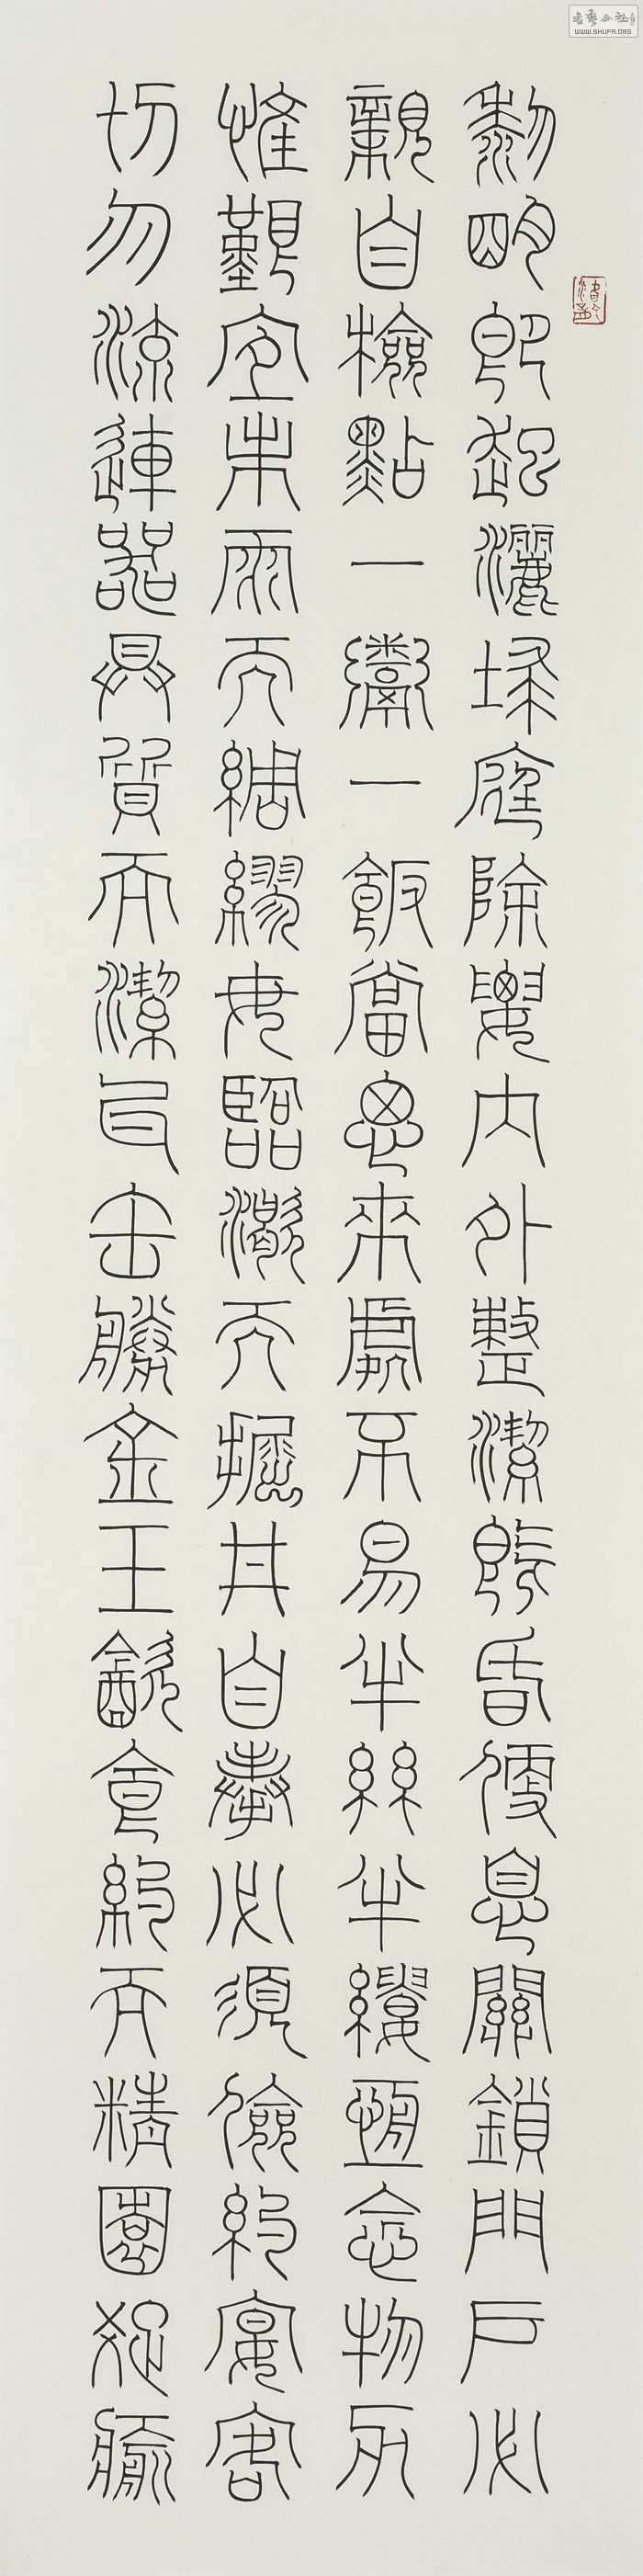 黎明即起灑埽庭除要內外整潔既昏便息關鎖門戶必
親自檢點一粥一飯當思來處不易半絲半縷恆念物力
惟艱宜未雨而綢繆毋臨渴而掘井自奉必須儉約宴客
切勿流連器具質而潔瓦缶勝金玉飲食約而精園疏愈
書藝公社
WWW.SHUFA.ORG